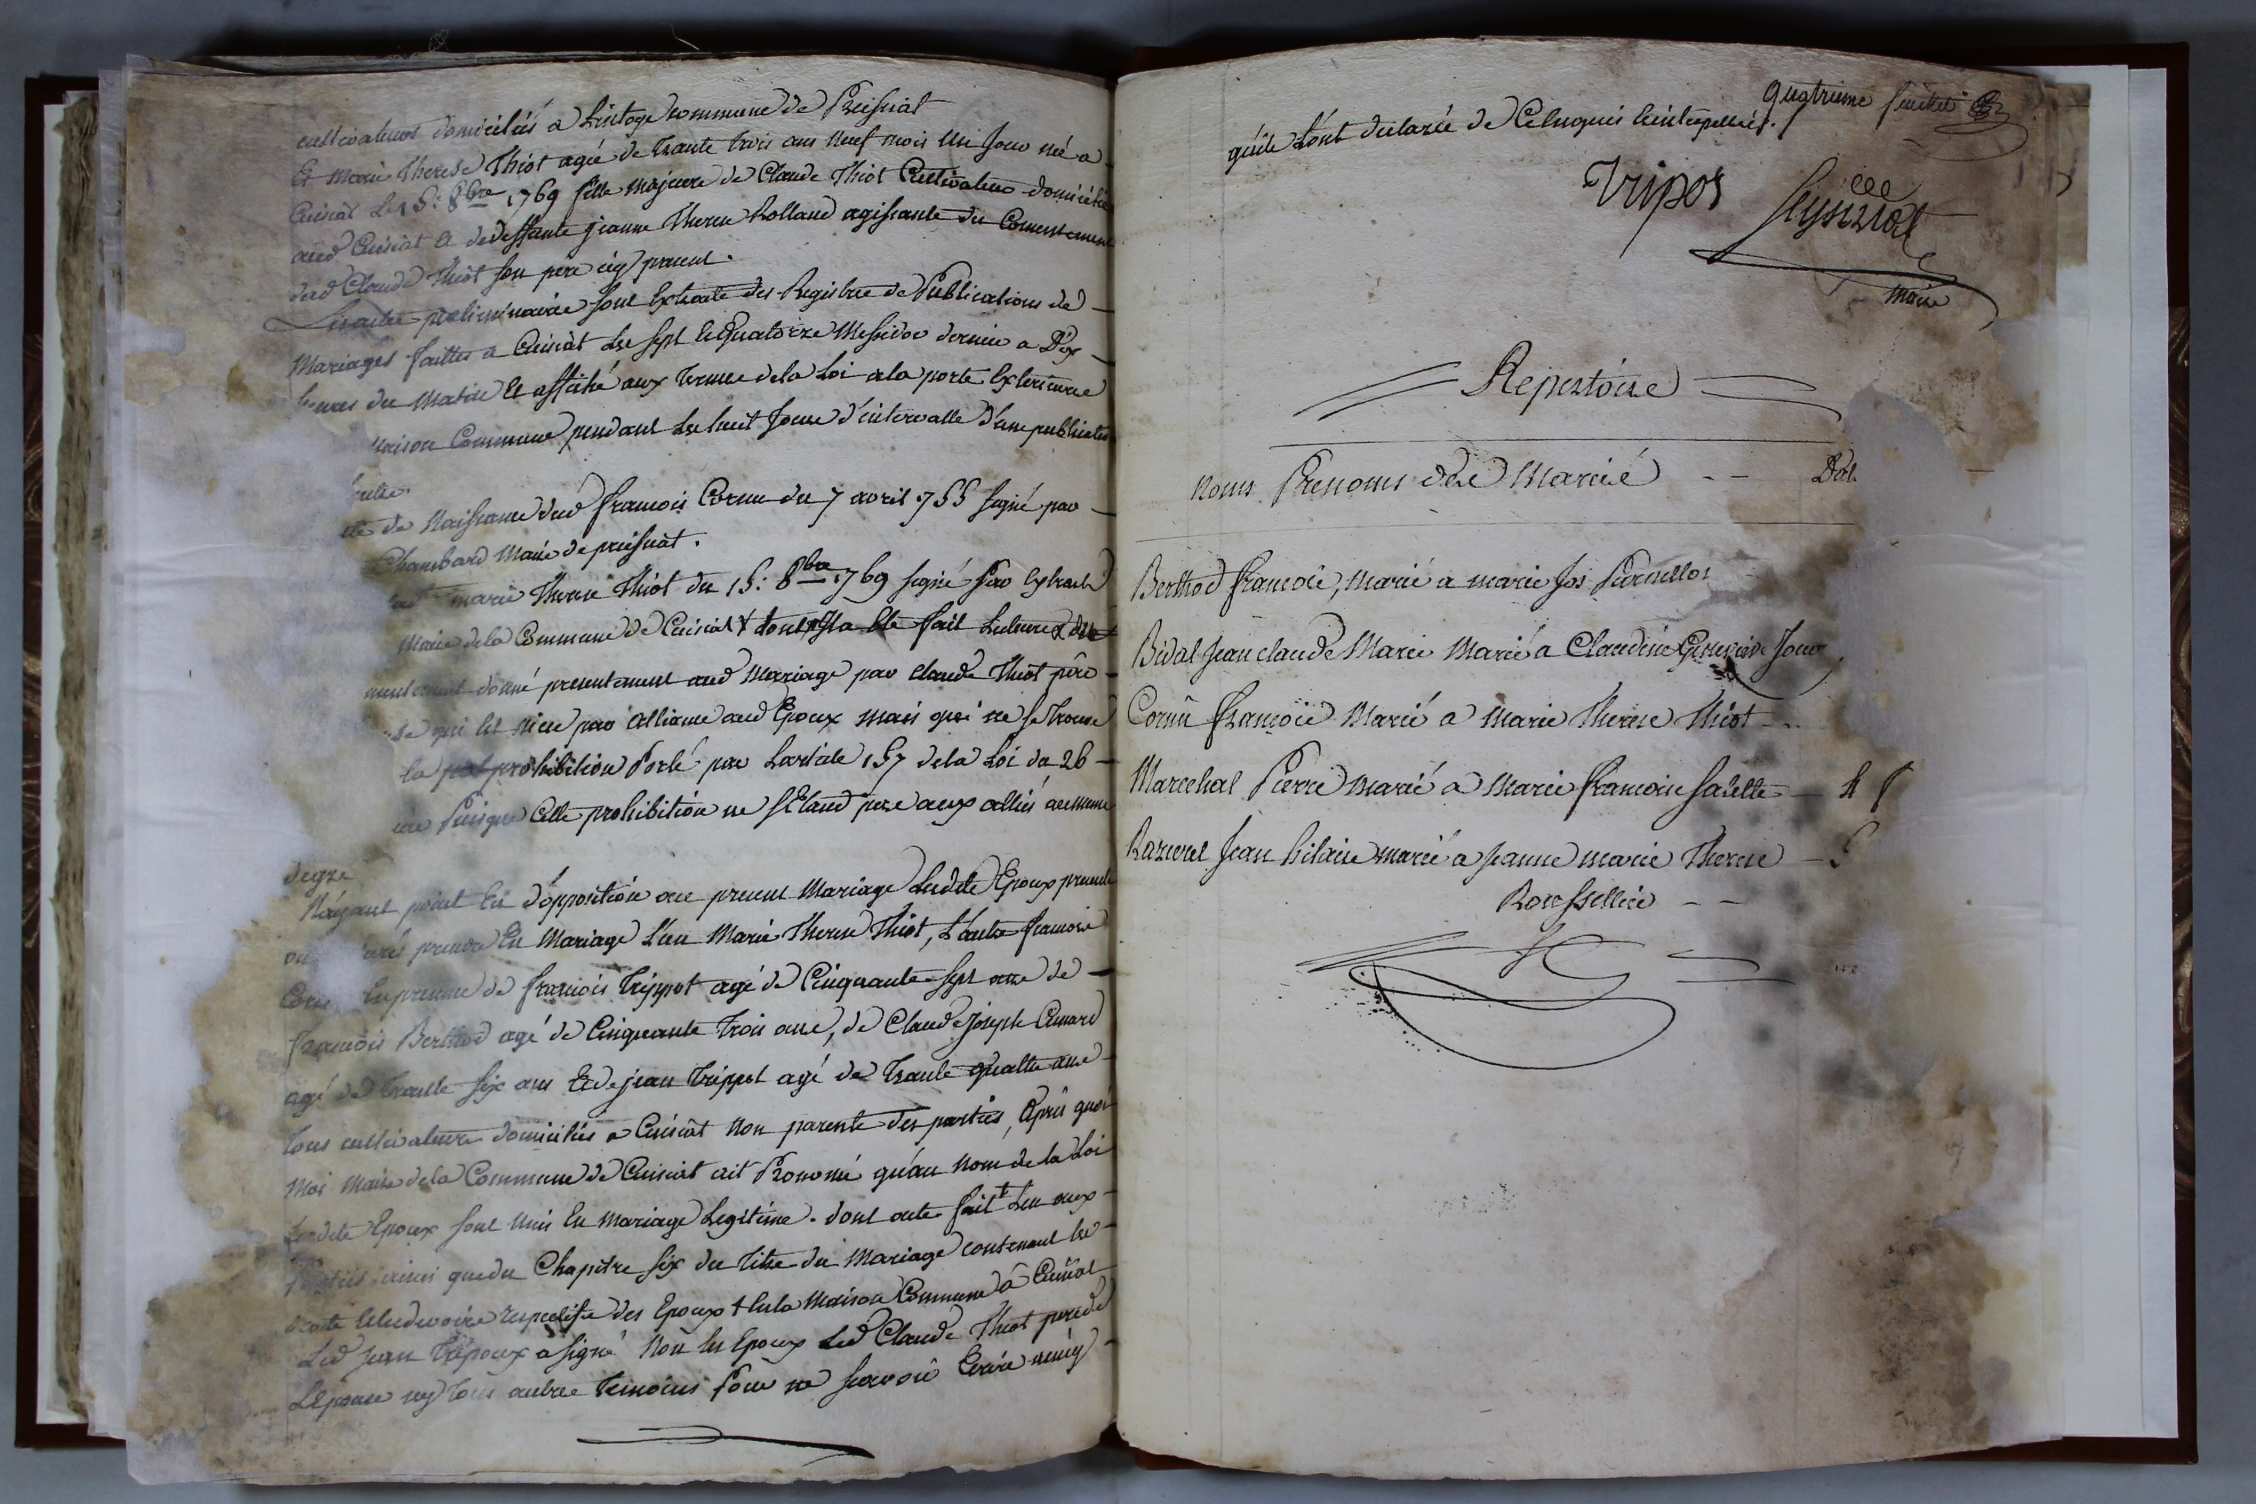 cultivateurs domiciliés a Lintage commune de Preisiat
Et marie Therese Thiot agée de trante trois ans neuf mois un Jour né a
Cuisiat Le 15: 8bre 1769 fille majeure de Claude Thiot Cultivateur domicilié
aud Cuisiat et de deffunte jeanne Therese Rolland agissante du Consentement
dud Claude Thiot son pere icy present.
preliminaire sont Extraits des Registre de Publications de
Mariages faittes a Cuisiat Les sept et Quatorze Messidor dernier a Dix
heures du Matin Et affiché aux termes de la Loi a la porte Exterieure
maison Commune pendant les huit Jours d'intervalle d'une publication
de Naissance dud francois Cornu du 7 avril 1755 signé par
Chambard Maire de preisiat.
marie Therese Thiot du 15: 8bre 1769 signé par Extrait
Maire de la Commune de Cuisiat dont il a été fait Lecture
donné presentement aud Mariage par Claude Thiot père
qui est niece par alliance aud Epoux mais qui ne se trouve
la prohibition Porté par Larticle 157 de la Loi du 26
Puisque Cette prohibition ne s'Etend pas aux alliés au meme
degre
N'ayant point Eu d'opposition au present Mariage Lesdits Epoux presents
prendre En Mariage L'un Marie Therese Thiot, L'autre francois
Cornu En presence de francois Trippot agé de Cinquante sept ans de
francois Berthod agé de Cinquante trois ans, de Claude Joseph Cunard
agé de trante six ans Et de jean Trippot agé de trante quattre ans
tous cultivateurs domiciliés a Cuisiat non parents des parties, Après quoi
Moi Maire de la Commune de Cuisiat ait Prononcé qu'au nom de la Loi
Lesdits Epoux sont Unis En Mariage Legitime. dont acte fait Leu aux
Parties ainsi que du Chapitre six du Titre du Mariage contenant les
droits Et devoirs respectifs des Epoux En la Maison Commune à Cuisiat
Led Jean Trippoz a signé Non les Epoux Led Claude Thiot pere de
L'Epouse ny tous autres Temoins pour ne scavoir Ecrire ainsy
quatrieme feuillet
qu'ils L'ont declarée de Ce Enquis Et interpellés.
Tripos
maire
Repertoire
Noms Prenoms des Mariés
Berthod francois, Marié a marie Jos
Bidal Jean claude Marie Marié a Claudine Genevieve
Cornu francois Marié a Marie Therese Thiot
Marechal Pierre Marié a Marie francoise salette
Razurel Jean hilaire marié a Jeanne marie Therese
Rousselliré